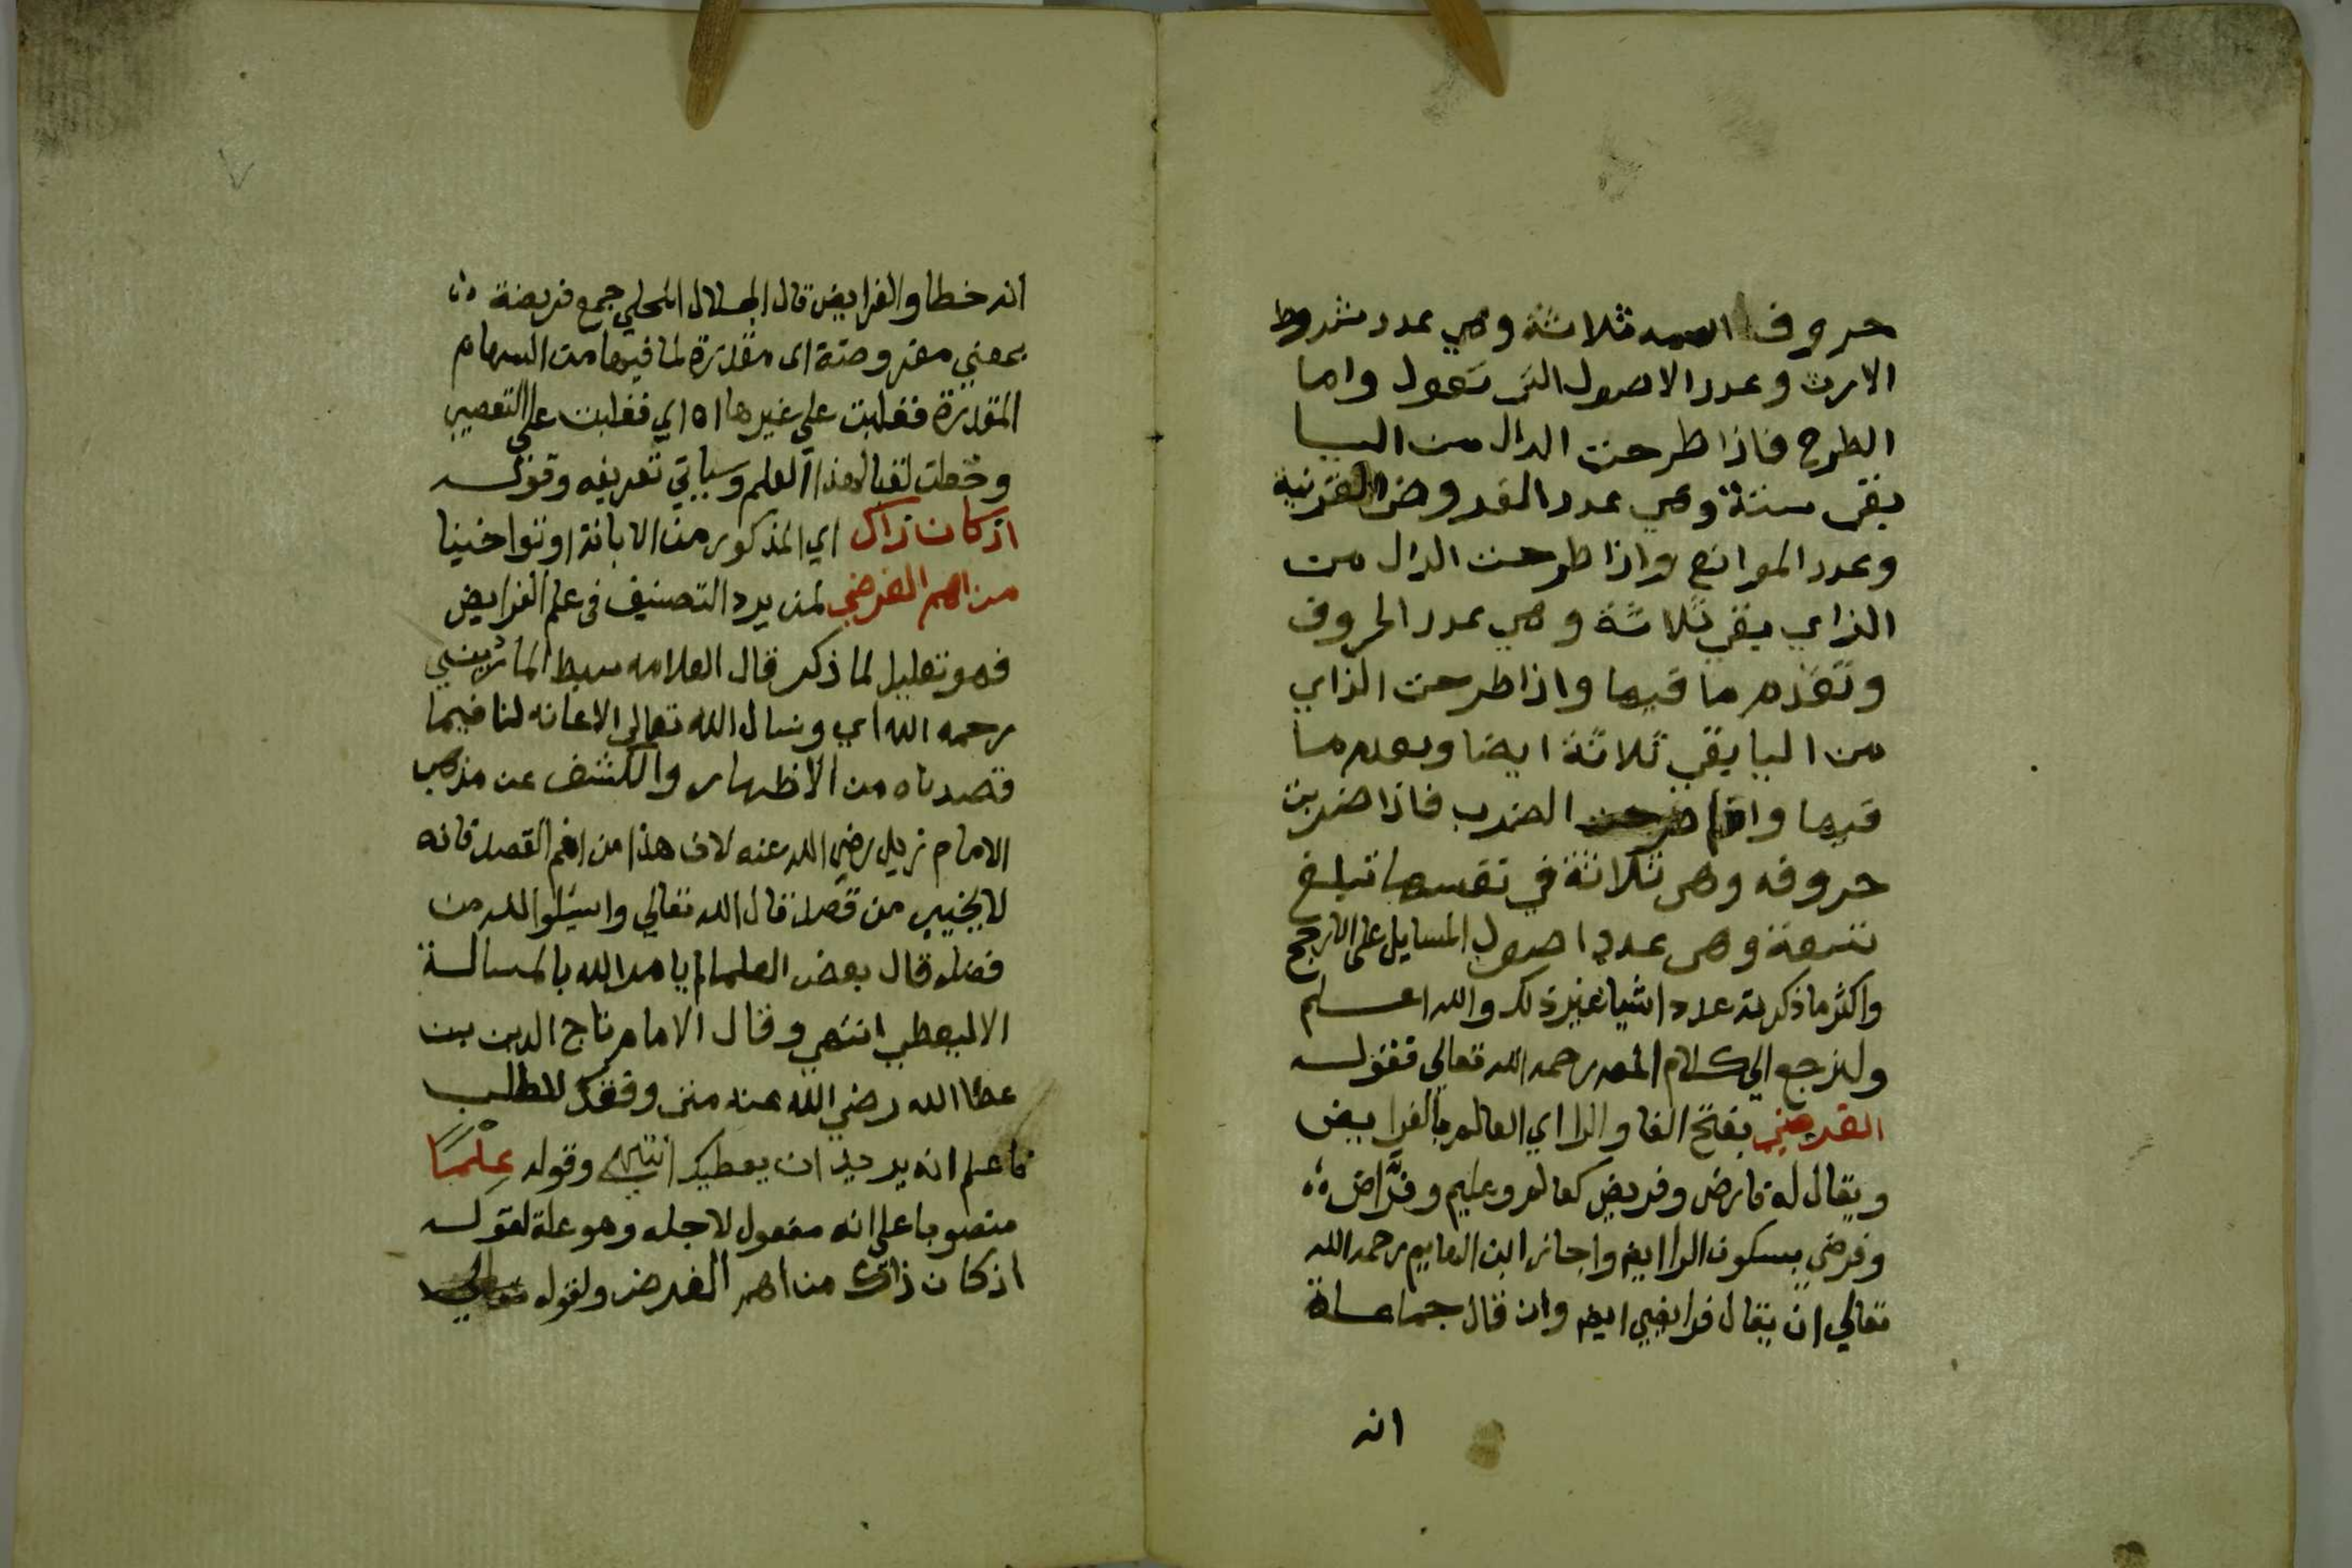 حروف اسمه ثلاثة وهي عدد شروط
الارث وعدد الاصول التي تعول واما
الطرح فاذا طرحت الدال من اليا
بقي ستة وهي عدد الفروض القرانية
وعدد الموانع واذا طرحت الدال من
الزاي بقي ثلاثة وهي عدد الحروف
وتقدم ما فيها واذا طرحت الزاي
من اليا يقي ثلاثة ايضا وتقدم ما
فيها واما الضرب فاذا ضربت
حروفه وهي ثلاثة في نفسها تبلغ
تسعة وهي عدد اصول المسايل على الارجح
واكثر ما ذكرته عدد اشيا غير ذلك والله اعلم
ولنرجع الي كلام المص رحمه الله تعالي فقوله
الفرضي بفتح الفا والرا اي العالم بالفرايض
ويقال له فارض وفريض كعالم وعليم وفراض
وفرضي بسكون الرا ايض واجاز ابن الهايم رحمه الله
تعالي ان يقال فرايضي ايض وان قال جماعة
انه
انه خطا والفرايض قال الجلال المحلي جمع فريضة
بمعني مفروضة اى مقدرة لما فيها من السهام
المقدرة فغلبت علي غيرها اه اي فغلبت على التعصيب
وجعلت لقبا لهذا العلم وسياتي تعريفه وقوله
اذ كان ذاك اي المذكور من الابانة او توا خينا
من اهم الغرض لمن يرد التصنيف فى علم الفرايض
فهو تعليل لما ذكر قال العلامه سبط المارديني
رحمه الله اي ونسال الله تعالى الاعانه لنا فيما
قصدناه من الاظهار والكشف عن مذهب
الامام زيد رضي الله عنه لان هذا من اهم القصد فانه
لا يخيب من قصده قال الله تعالي واسئلوا الله من
فضله قال بعض العلما لم يامر الله بالمسالة
الا ليعطي انتهي وقال الامام تاج الدين بن
عطا الله رضي الله عنه متى وفقك للطلب
فاعلم انه يريد ان يعطيك انتهى وقوله علما
منصوبا على انه مفعول لاجله وهو علة لقوله
اذ كان ذاك من اهم الغرض ولقوله